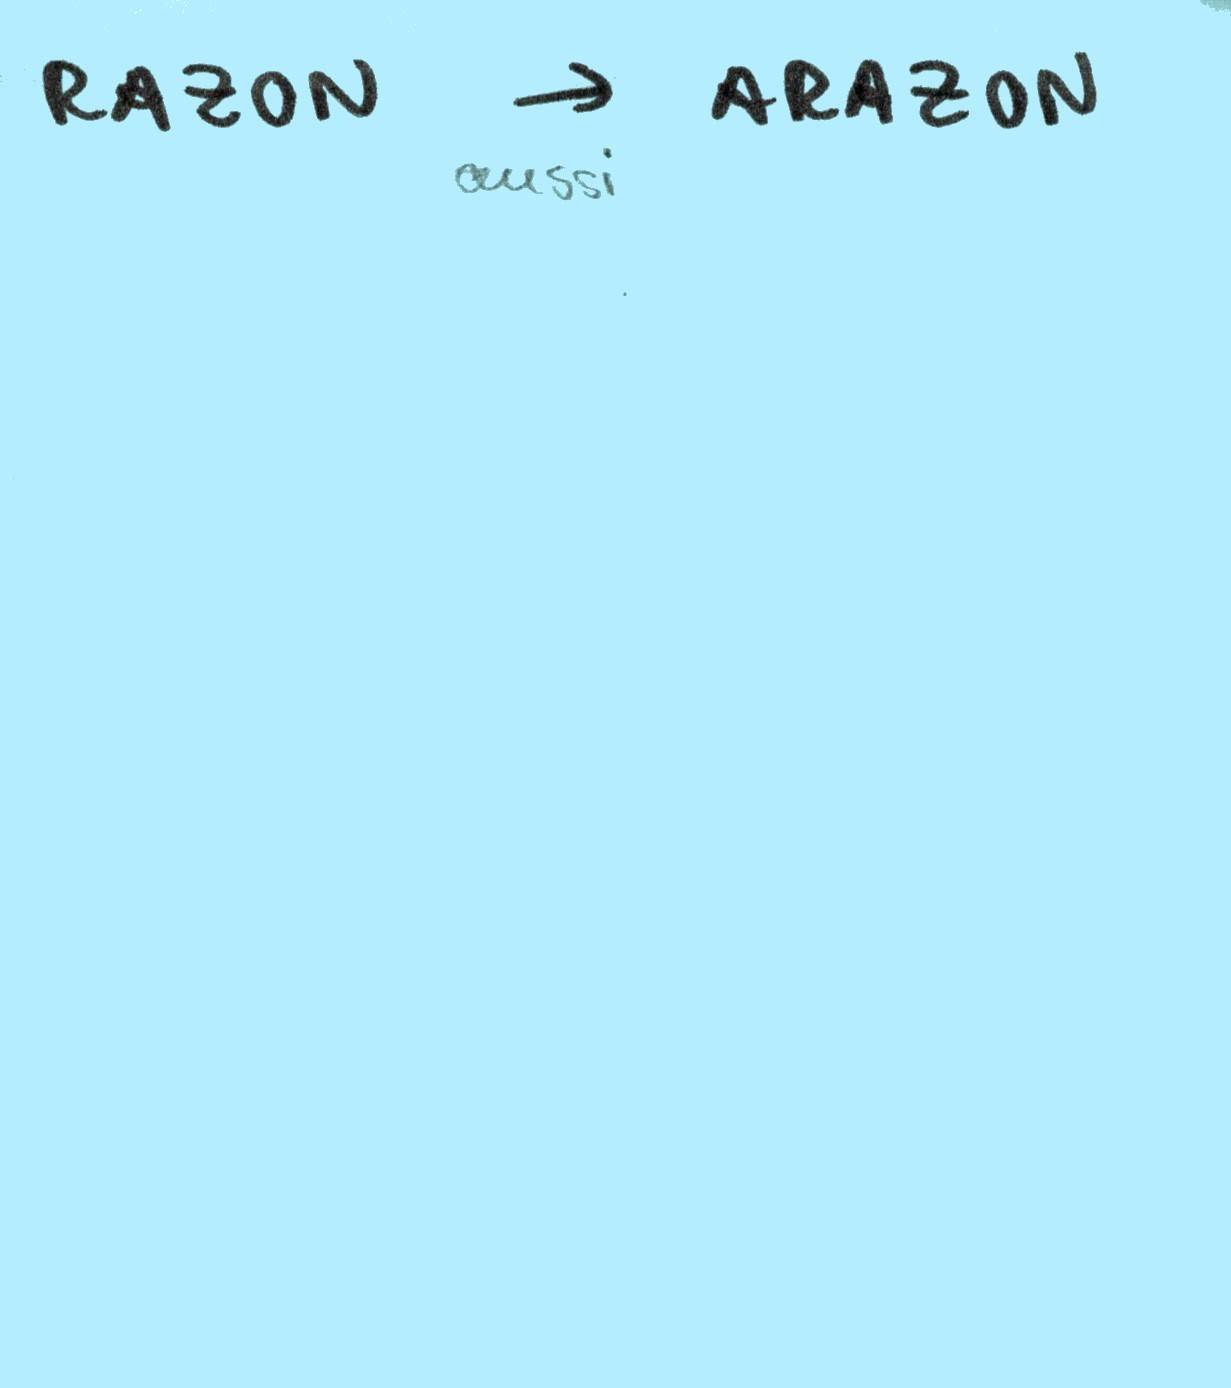 RAZON → ARAZON
aussi